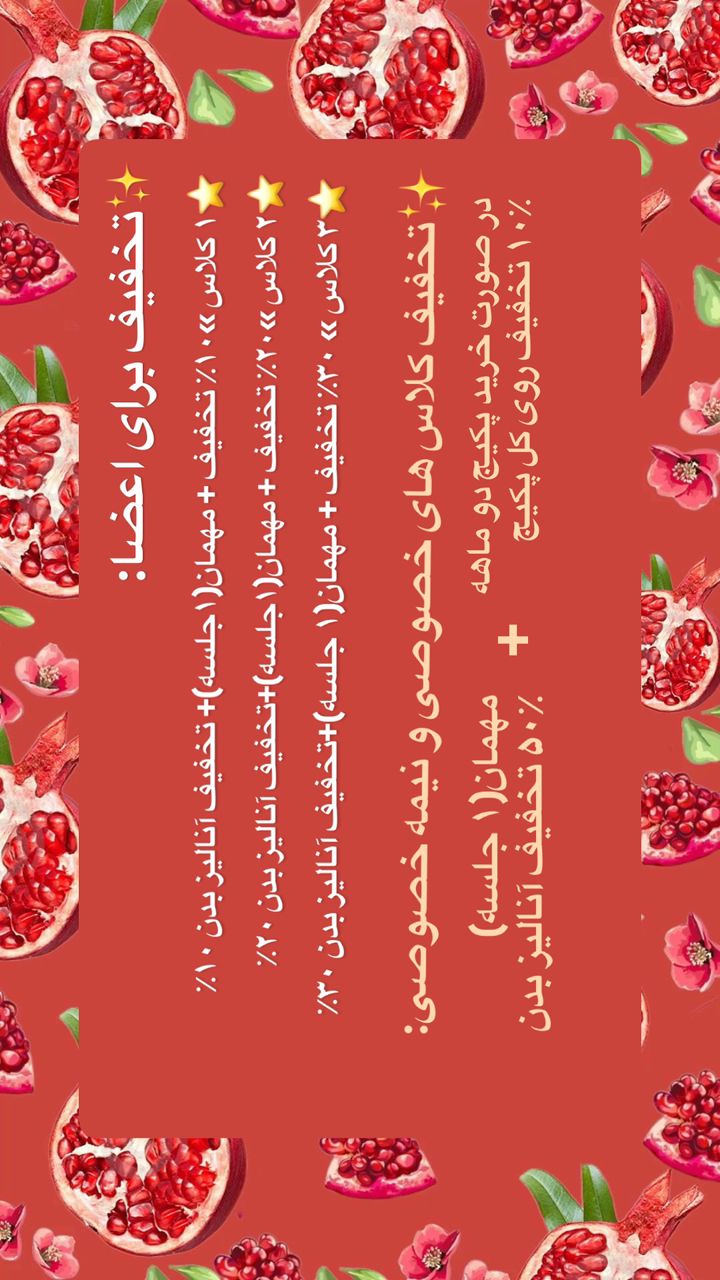 ✨تخفیف برای اعضا:
⭐۱ کلاس »۱۰٪ تخفیف + مهمان(۱جلسه)+ تخفیف آنالیز بدن ۱۰٪
⭐۲ کلاس»۲۰٪ تخفیف + مهمان(۱جلسه)+تخفیف آنالیز بدن ۲۰٪
⭐۳ کلاس » ۳۰٪ تخفیف + مهمان(۱ جلسه)+تخفیف آنالیز بدن ۳۰٪
✨تخفیف کلاس های خصوصی و نیمه خصوصی:
در صورت خرید پکیج دو ماهه
۱۰٪ تخفیف روی کل پکیج
+
مهمان(۱ جلسه)
۵۰٪ تخفیف آنالیز بدن